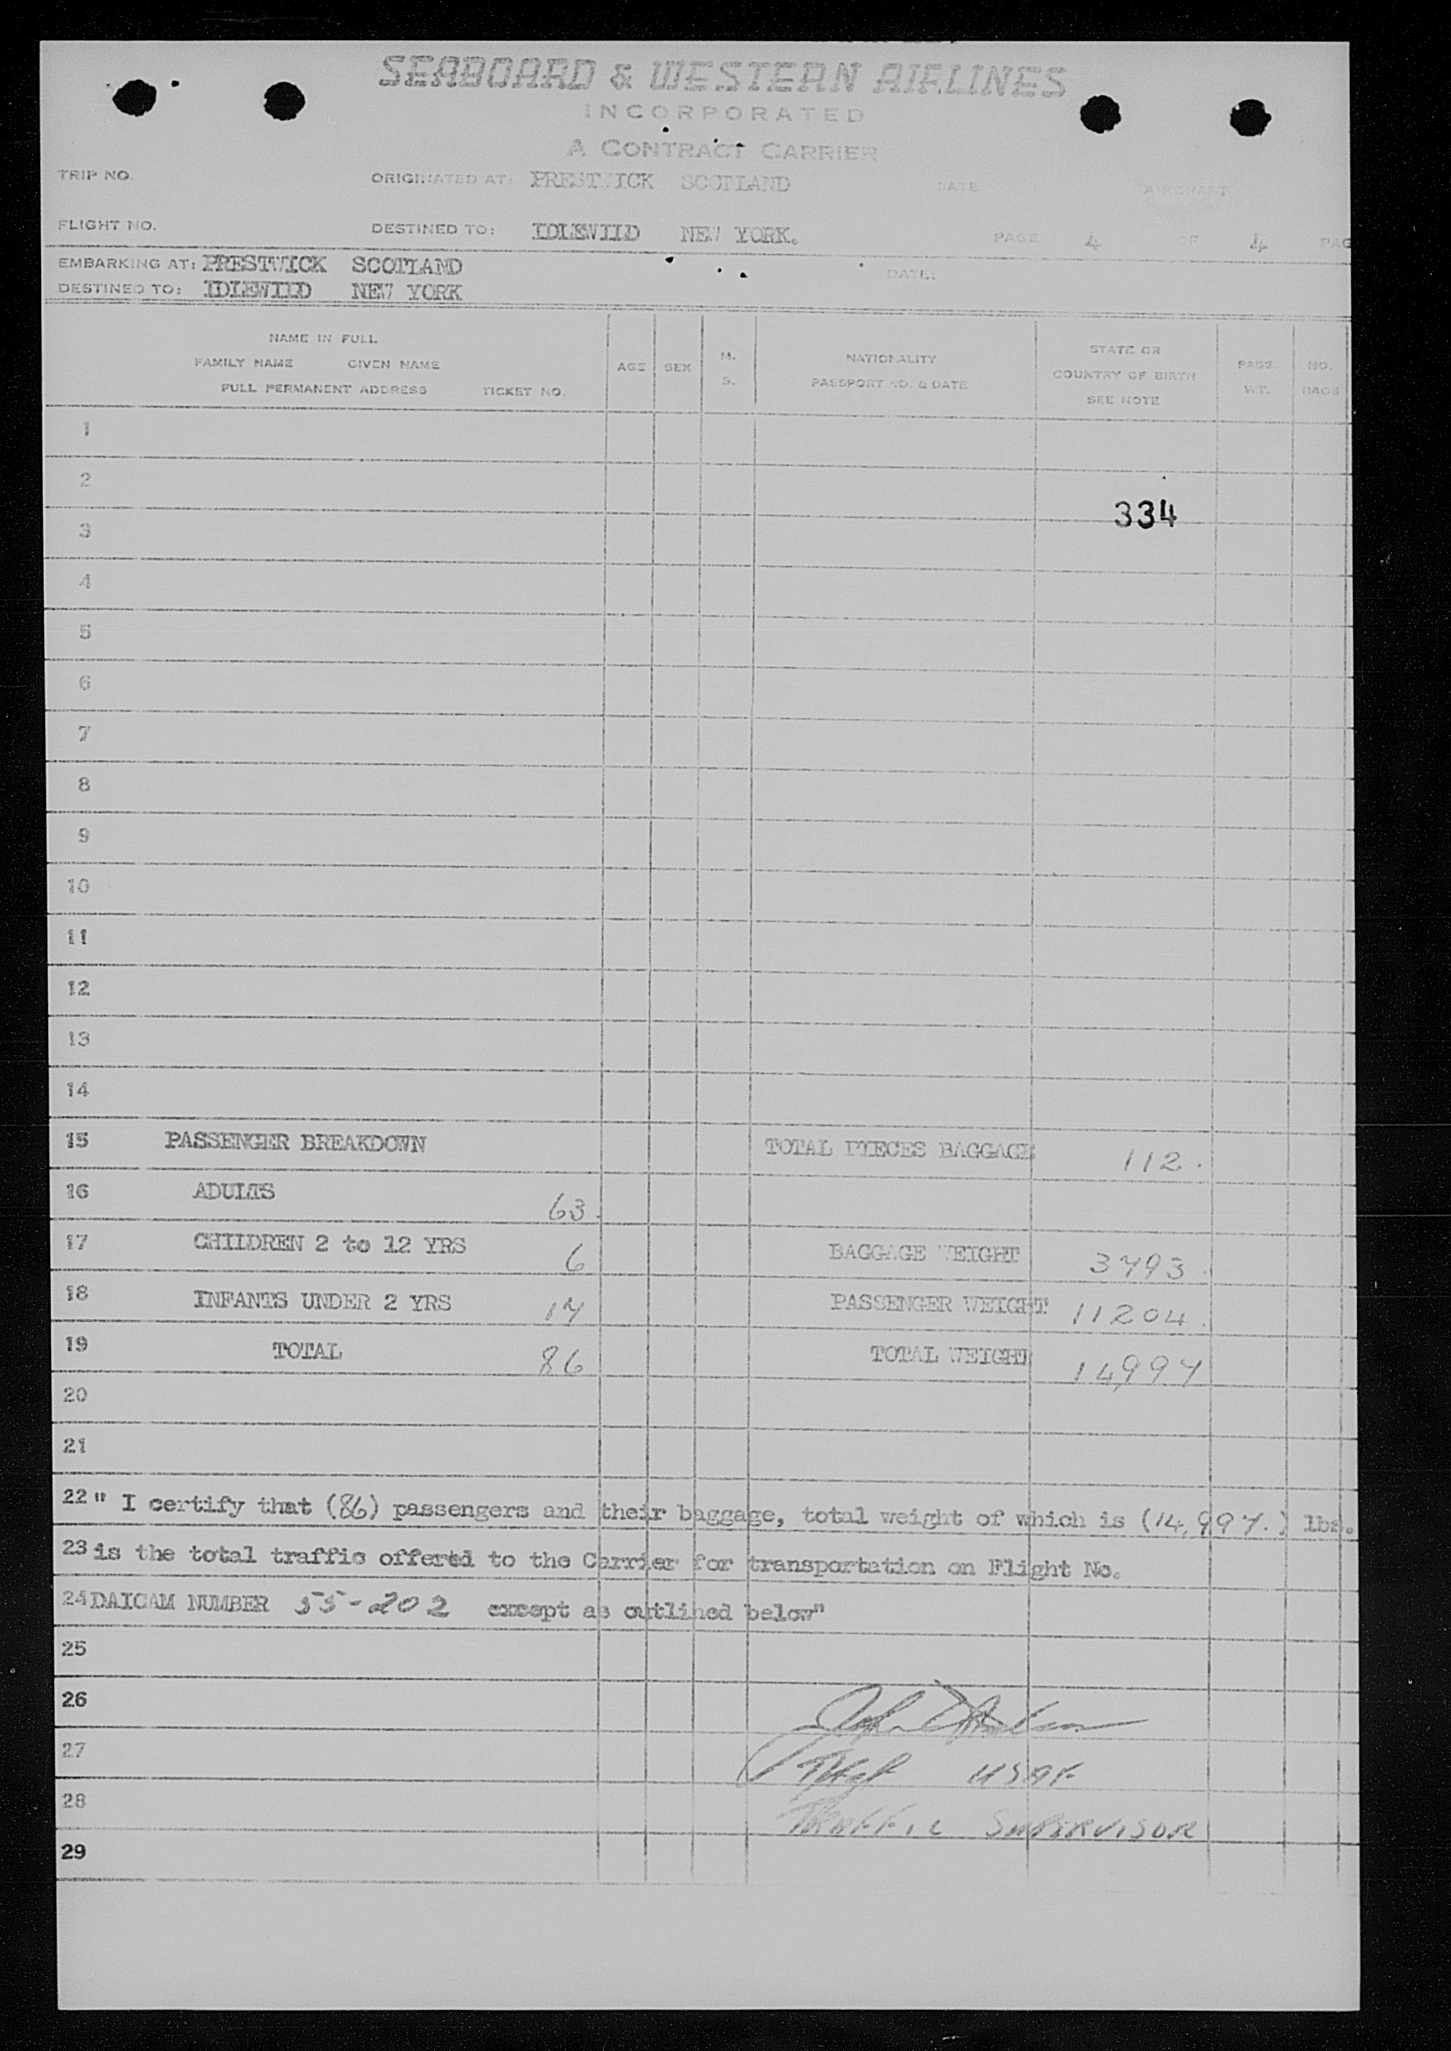 SEABOARD & WESTERN AIRLINES
INCORPORATED
A CONTRACT CARRIER
TRIP NO. ORIGINATED AT: PRESTWICK SCOTLAND DATE AIRCRAFT
FLIGHT NO. DESTINED TO: IDLEWILD NEW YORK. PAGE 4 OF 4 PAG
EMBARKING AT: PRESTWICK SCOTLAND DATE:
DESTINED TO: IDLEWILD NEW YORK
NAME IN FULL
FAMILY NAME GIVEN NAME
FULL PERMANENT ADDRESS TICKET NO.
AGE
SEX
M.
S.
NATIONALITY
PASSPORT NO. & DATE
STATE OR
COUNTRY OF BIRTH
SEE NOTE
PASS.
WT.
NO.
BAGS
1
2
334
3
4
5
6
7
8
9
10
11
12
13
14
15 PASSENGER BREAKDOWN TOTAL PIECES BAGGAGE 112.
16 ADULTS 63.
17 CHILDREN 2 to 12 YRS 6 BAGGAGE WEIGHT 3793.
18 INFANTS UNDER 2 YRS 17 PASSENGER WEIGHT 11204.
19 TOTAL 86 TOTAL WEIGHT 14,997
20
21
22 " I certify that (86) passengers and their baggage, total weight of which is (14,997.) lbs.
23 is the total traffic offered to the Carrier for transportation on Flight No.
24 DAICAM NUMBER 55-202 except as outlined below"
25
26 John
27 USAF
28 TRAFFIC SUPERVISOR
29